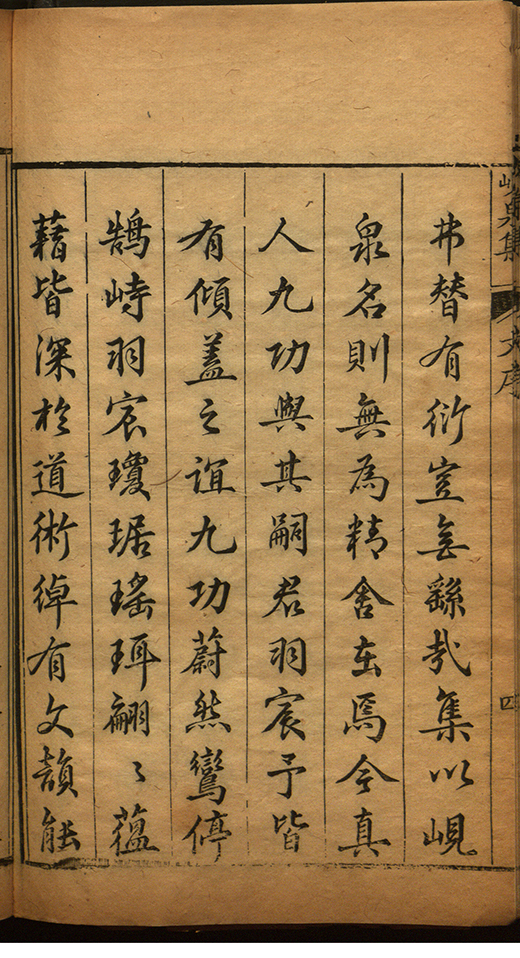 弗替有衍豈無繇哉集以峴
泉名則無為精舍在焉今真
人九功與其嗣君羽宸予皆
有傾蓋之誼九功蔚然鸞停
鵠峙羽宸瓊琚瑤珥翩〻蘊
藉皆深於道術綽有文頴能
峴泉集
文序
四